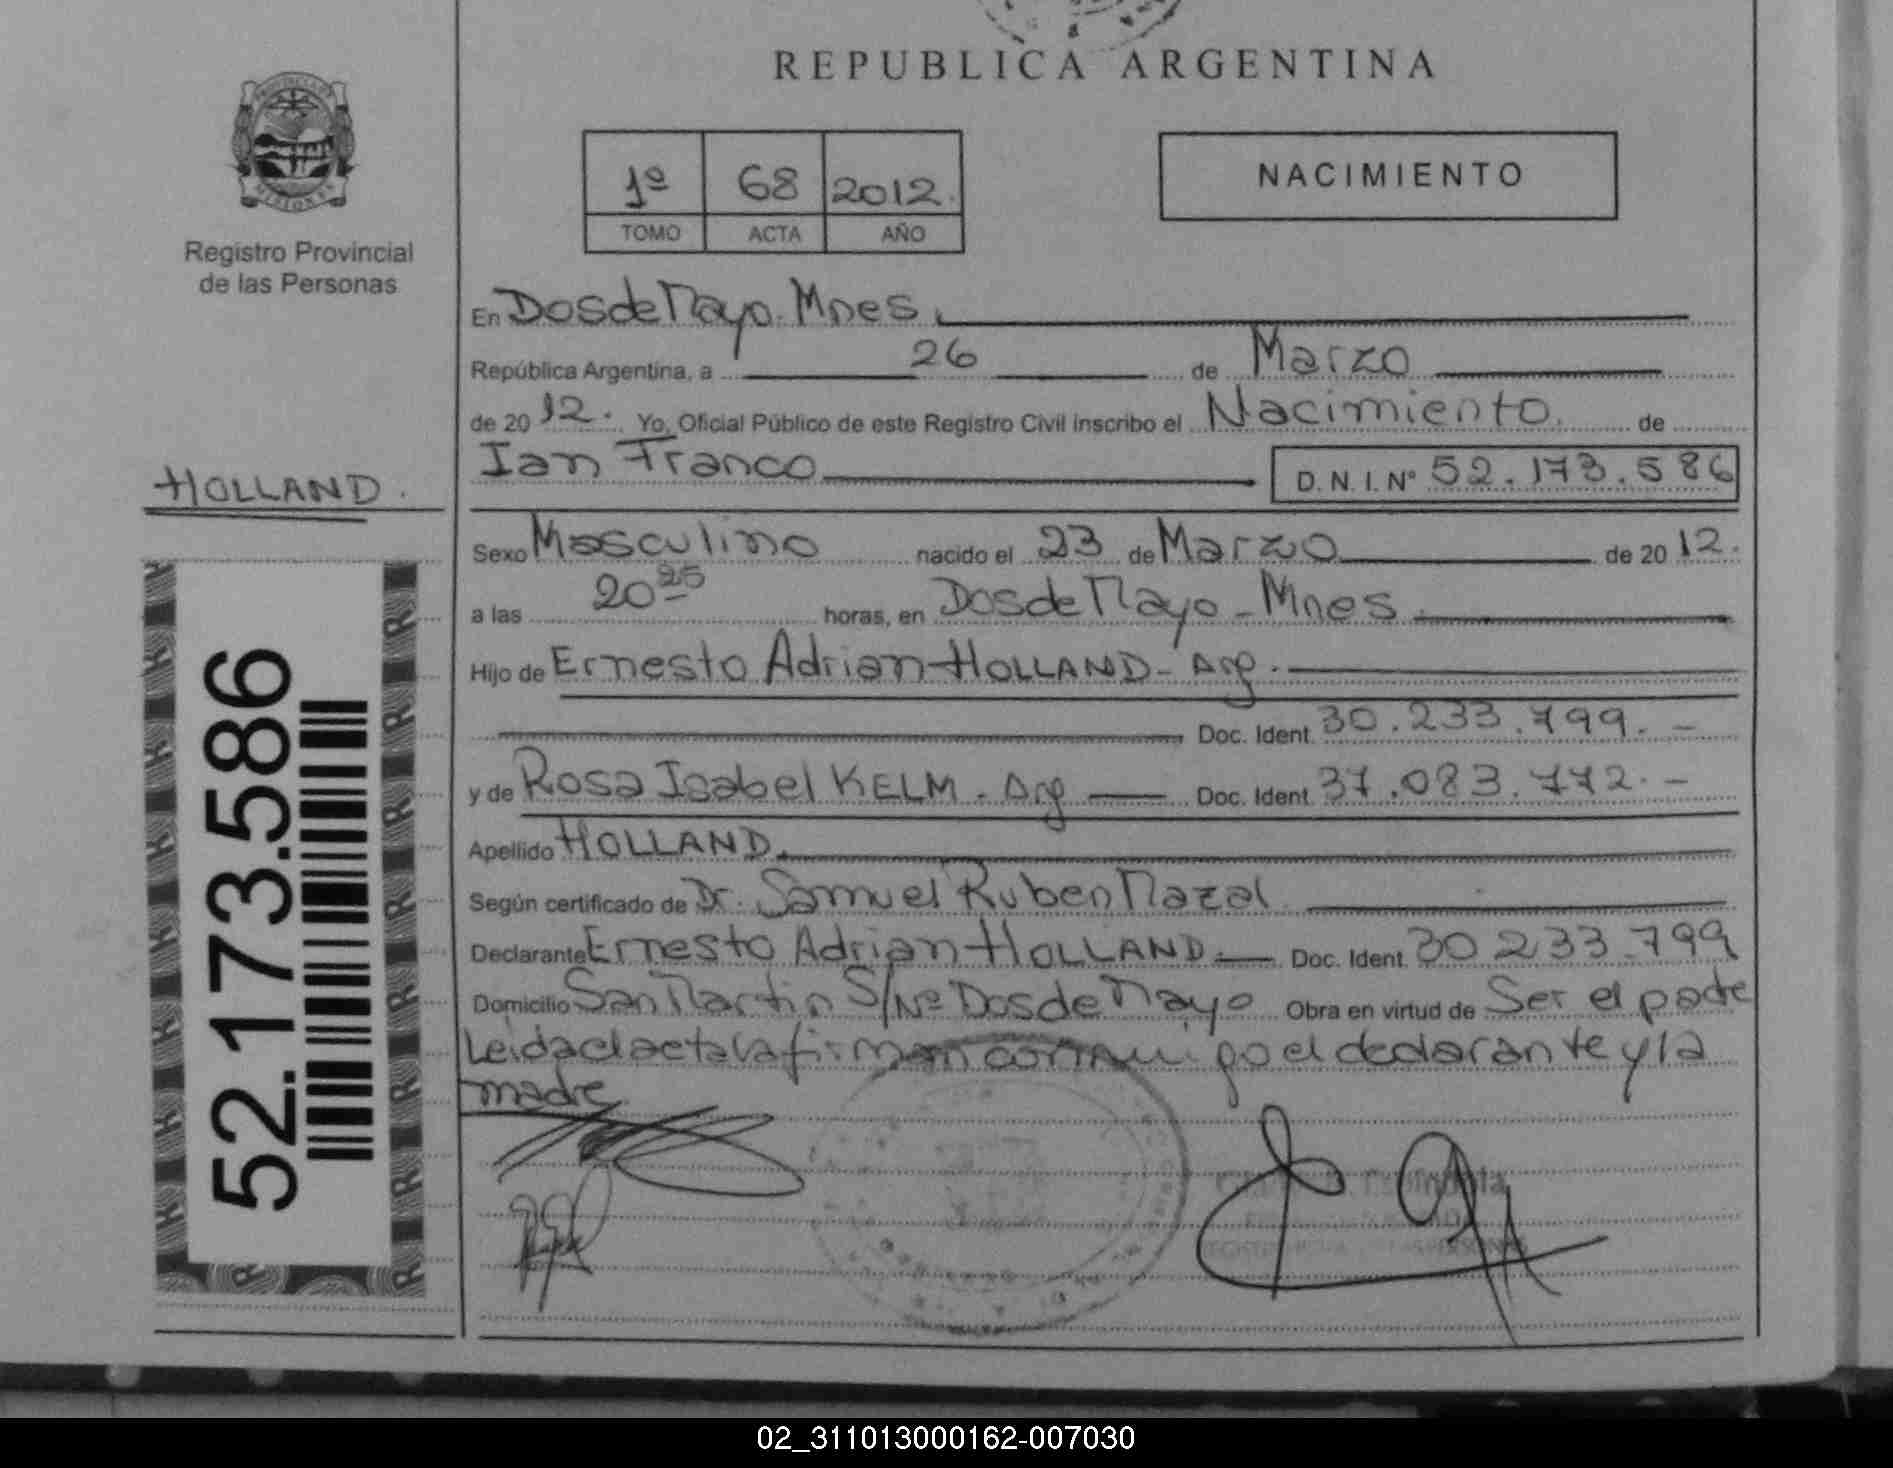 REPUBLICA ARGENTINA
PROVINCIA DE
MISIONES
Registro Provincial
de las Personas
1º 68 2012.
TOMO ACTA AÑO
NACIMIENTO
En Dos de Mayo. Mnes.
República Argentina, a 26 de Marzo
de 20 12. Yo, Oficial Público de este Registro Civil inscribo el Nacimiento. de
Ian Franco D. N. I. Nº 52.173.586
HOLLAND.
Sexo Masculino nacido el 23 de Marzo de 20 12.
a las 20 25 horas, en Dos de Mayo - Mnes.
Hijo de Ernesto Adrian HOLLAND - Arg.
Doc. Ident. 30.233.799. -
y de Rosa Isabel KELM. Arg Doc. Ident. 37.083.772. -
Apellido HOLLAND.
Según certificado de Dr. Samuel Ruben Mazal
Declarante Ernesto Adrian HOLLAND. Doc. Ident. 30 233.799
Domicilio San Martin S/Nº Dos de Mayo Obra en virtud de Ser el padre
Leida el acta la firman conmigo el declarante y la
madre
52.173.586
02_311013000162-007030